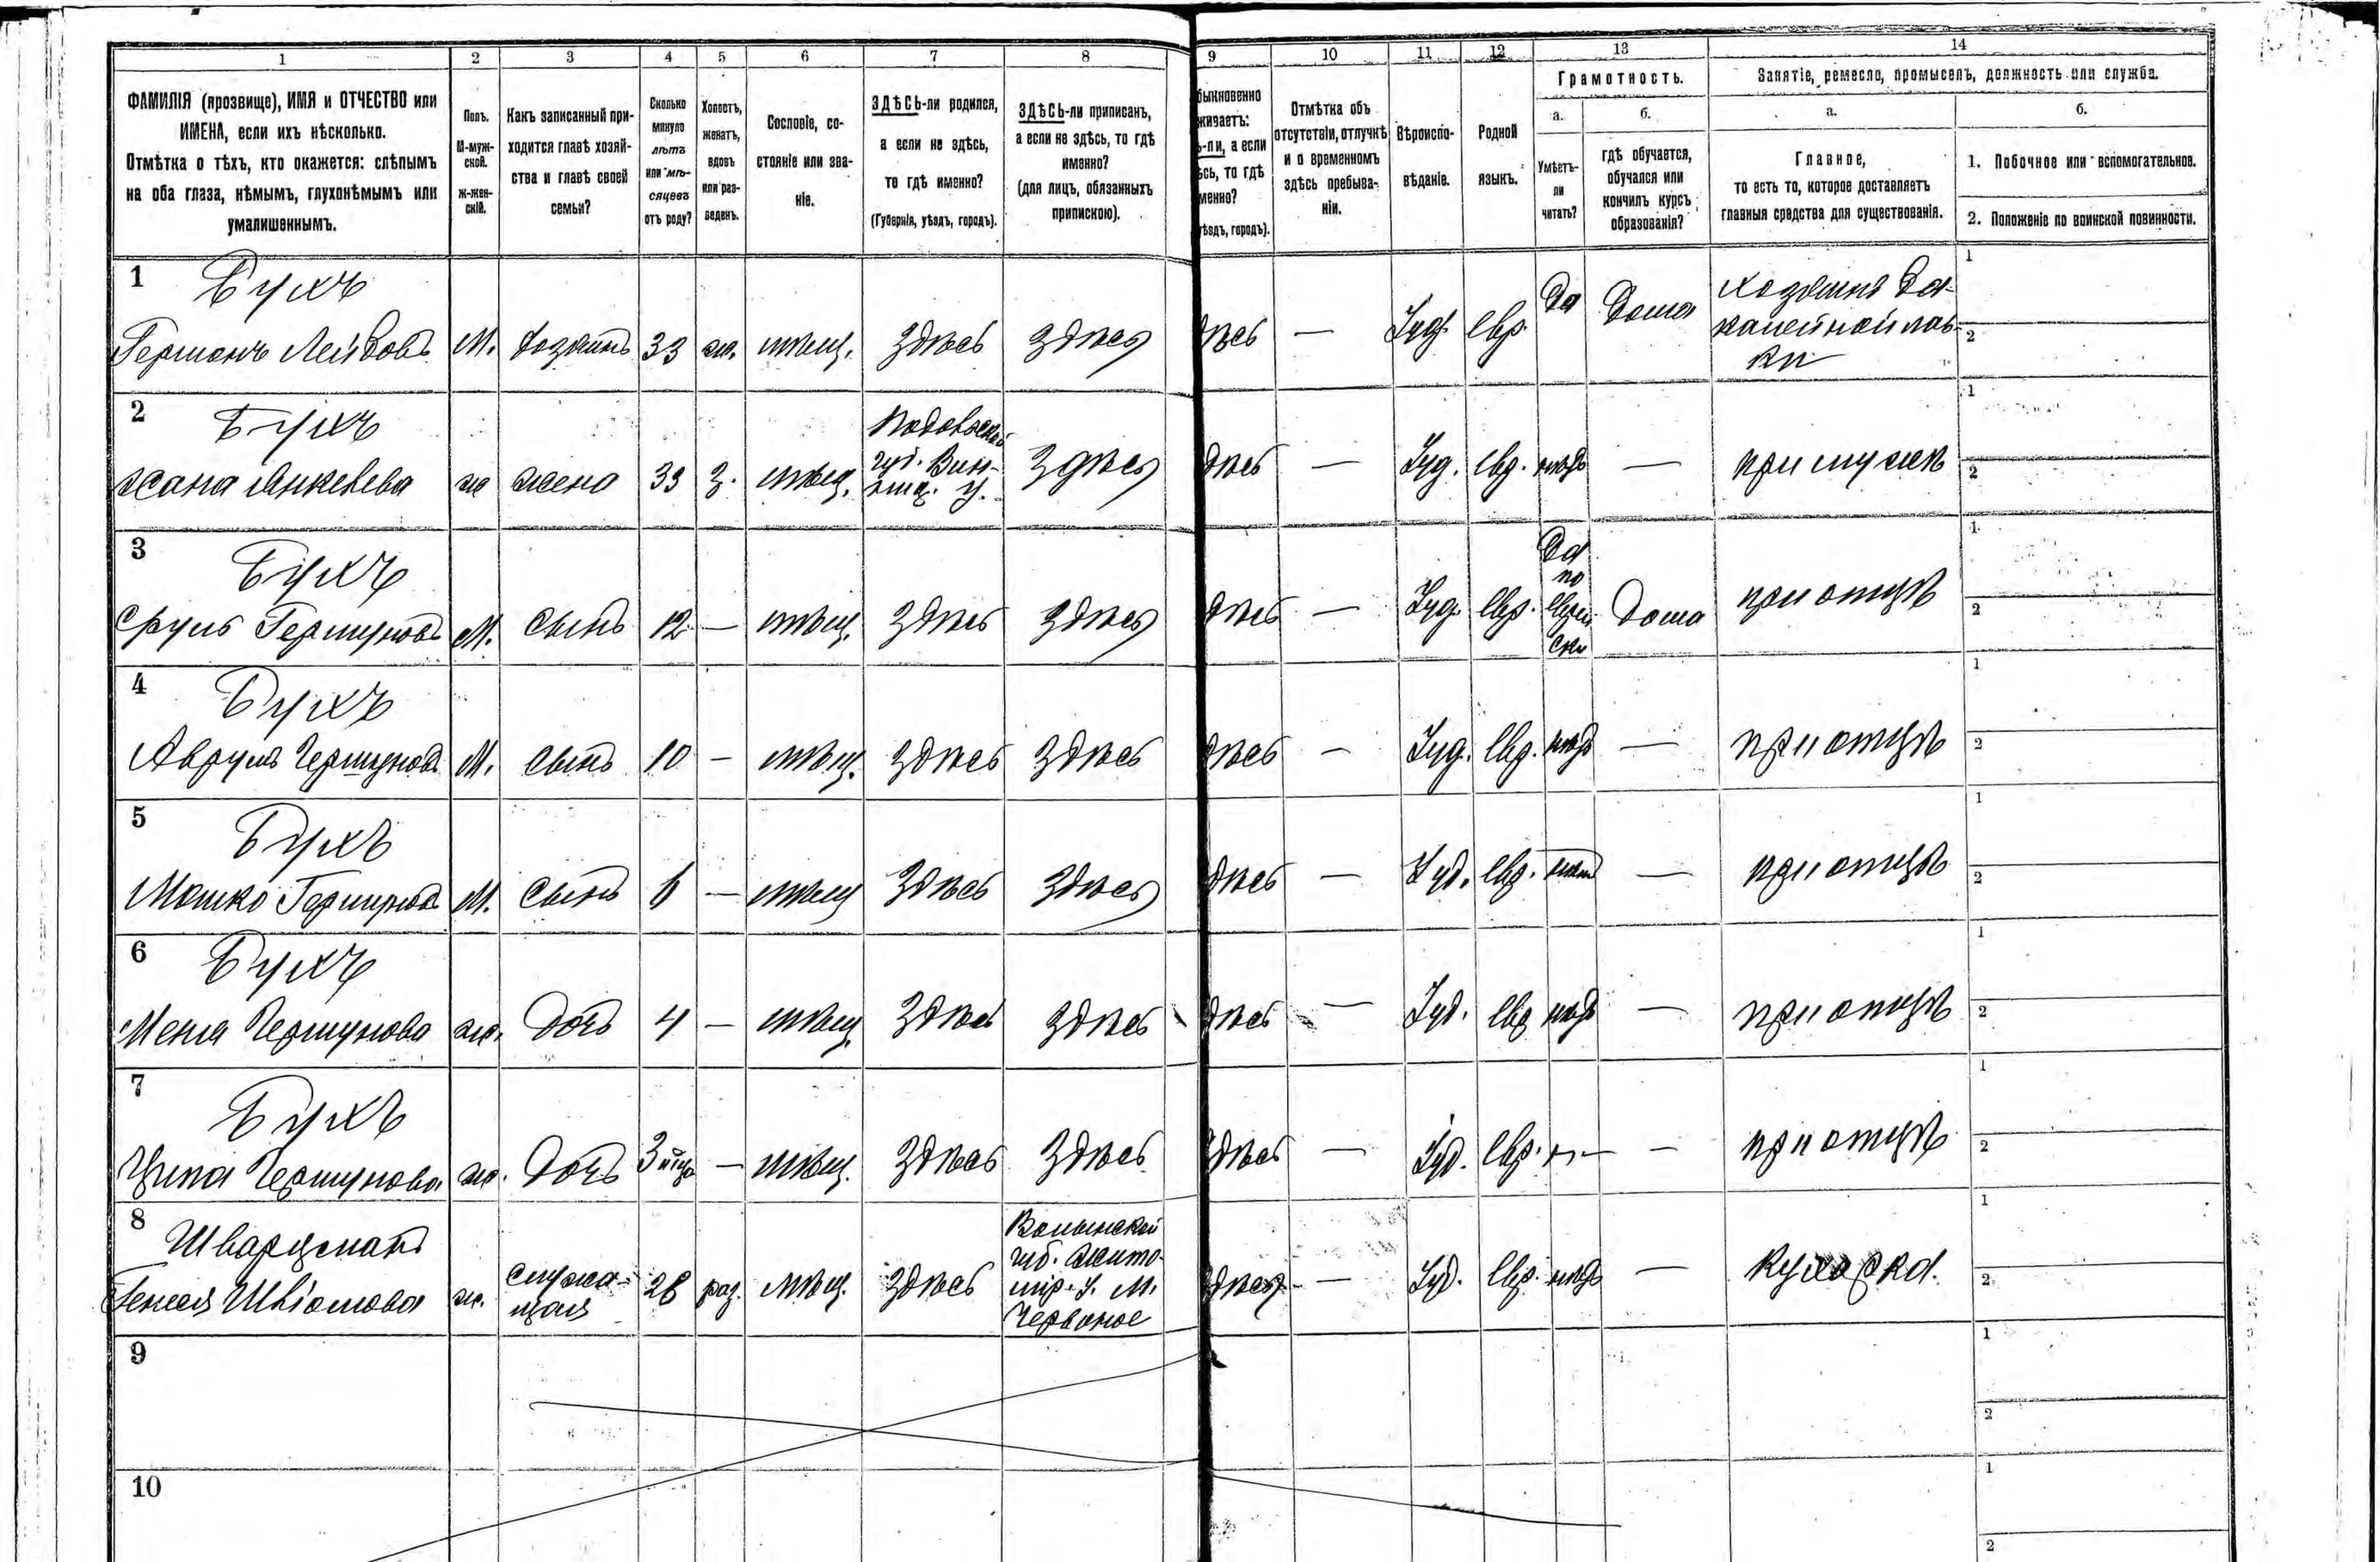 1 2 3 4 5 6 7 8 9 10 11 12 13 14
ФАМИЛІЯ (прозвище), ИМЯ и ОТЧЕСТВО или
ИМЕНА, если ихъ нѣсколько.
Отмѣтка о тѣхъ, кто окажется: слѣпымъ
на оба глаза, нѣмымъ, глухонѣмымъ или
умалишеннымъ.
Полъ.
М-муж-
ской.
Ж-жен-
скій.
Какъ записанный при-
ходится главѣ хозяй-
ства и главѣ своей
семьи?
Сколько
минуло
лѣтъ
или мѣ-
сяцевъ
отъ роду?
Холостъ,
женатъ,
вдовъ
или раз-
веденъ.
Сословіе, со-
стояніе или зва-
ніе.
ЗДѢСЬ-ли родился,
а если не здѣсь,
то гдѣ именно?
(Губернія, уѣздъ, городъ).
ЗДѢСЬ-ли приписанъ,
а если не здѣсь, то гдѣ
именно?
(для лицъ, обязанныхъ
припискою).
быкновенно
живаетъ:
ь-ли, а если
сь, то гдѣ
менно?
ѣздъ, городъ).
Отмѣтка объ
отсутствіи, отлучкѣ
и о временномъ
здѣсь пребыва-
ніи.
Вѣроиспо-
вѣданіе.
Родной
языкъ.
Грамотность.
а.
Умѣетъ-
ли
читать?
б.
гдѣ обучается,
обучался или
кончилъ курсъ
образованія?
Занятіе, ремесло, промыселъ, должность или служба.
а.
Главное,
то есть то, которое доставляетъ
главныя средства для существованія.
б.
1. Побочное или вспомогательное.
2. Положеніе по воинской повинности.
1 Бухъ
Гершонъ Лейбовъ М. Хозяинъ 33 ж. мѣщ. здѣсь здѣсь дѣсь — Іуд. евр. Да Дома
Хозяинъ ба-
калейной лав-
ки
1
2
2 Бухъ
Хана Анкелева ж жена 33 з. мѣщ.
Подольской
губ. Вин-
ниц. у.
здѣсь дѣсь — Іуд. евр. нѣтъ — при мужѣ
1
2
3 Бухъ
Сруль Гершуновъ М. сынъ 12 — мѣщ. здѣсь здѣсь дѣсь — Іуд. евр.
Да
по
еврей
ски
Дома при отцѣ
1
2
4 Бухъ
Аврумъ Гершуновъ М. сынъ 10 — мѣщ. здѣсь здѣсь дѣсь — Іуд. евр. нѣтъ — при отцѣ
1
2
5 Бухъ
Мошко Гершуновъ М. сынъ 6 — мѣщ здѣсь здѣсь дѣсь — Іуд. евр. нѣтъ — при отцѣ
1
2
6 Бухъ
Меня Гершунова ж. Дочь 4 — мѣщ. здѣсь здѣсь дѣсь — Іуд. евр нѣтъ — при отцѣ
1
2
7 Бухъ
Ципа Гершунова ж. Дочь 3 мѣща — мѣщ. здѣсь здѣсь здѣсь — Іуд. евр. — при отцѣ
1
2
8 Шварцманъ
ж.
служа-
щая
28 раз. мѣщ. здѣсь
Волынской
губ. Жито-
мір. у. М.
Червоное
здѣсь — Іуд. евр. нѣтъ — кухарка.
1
2
9
1
2
10
1
2